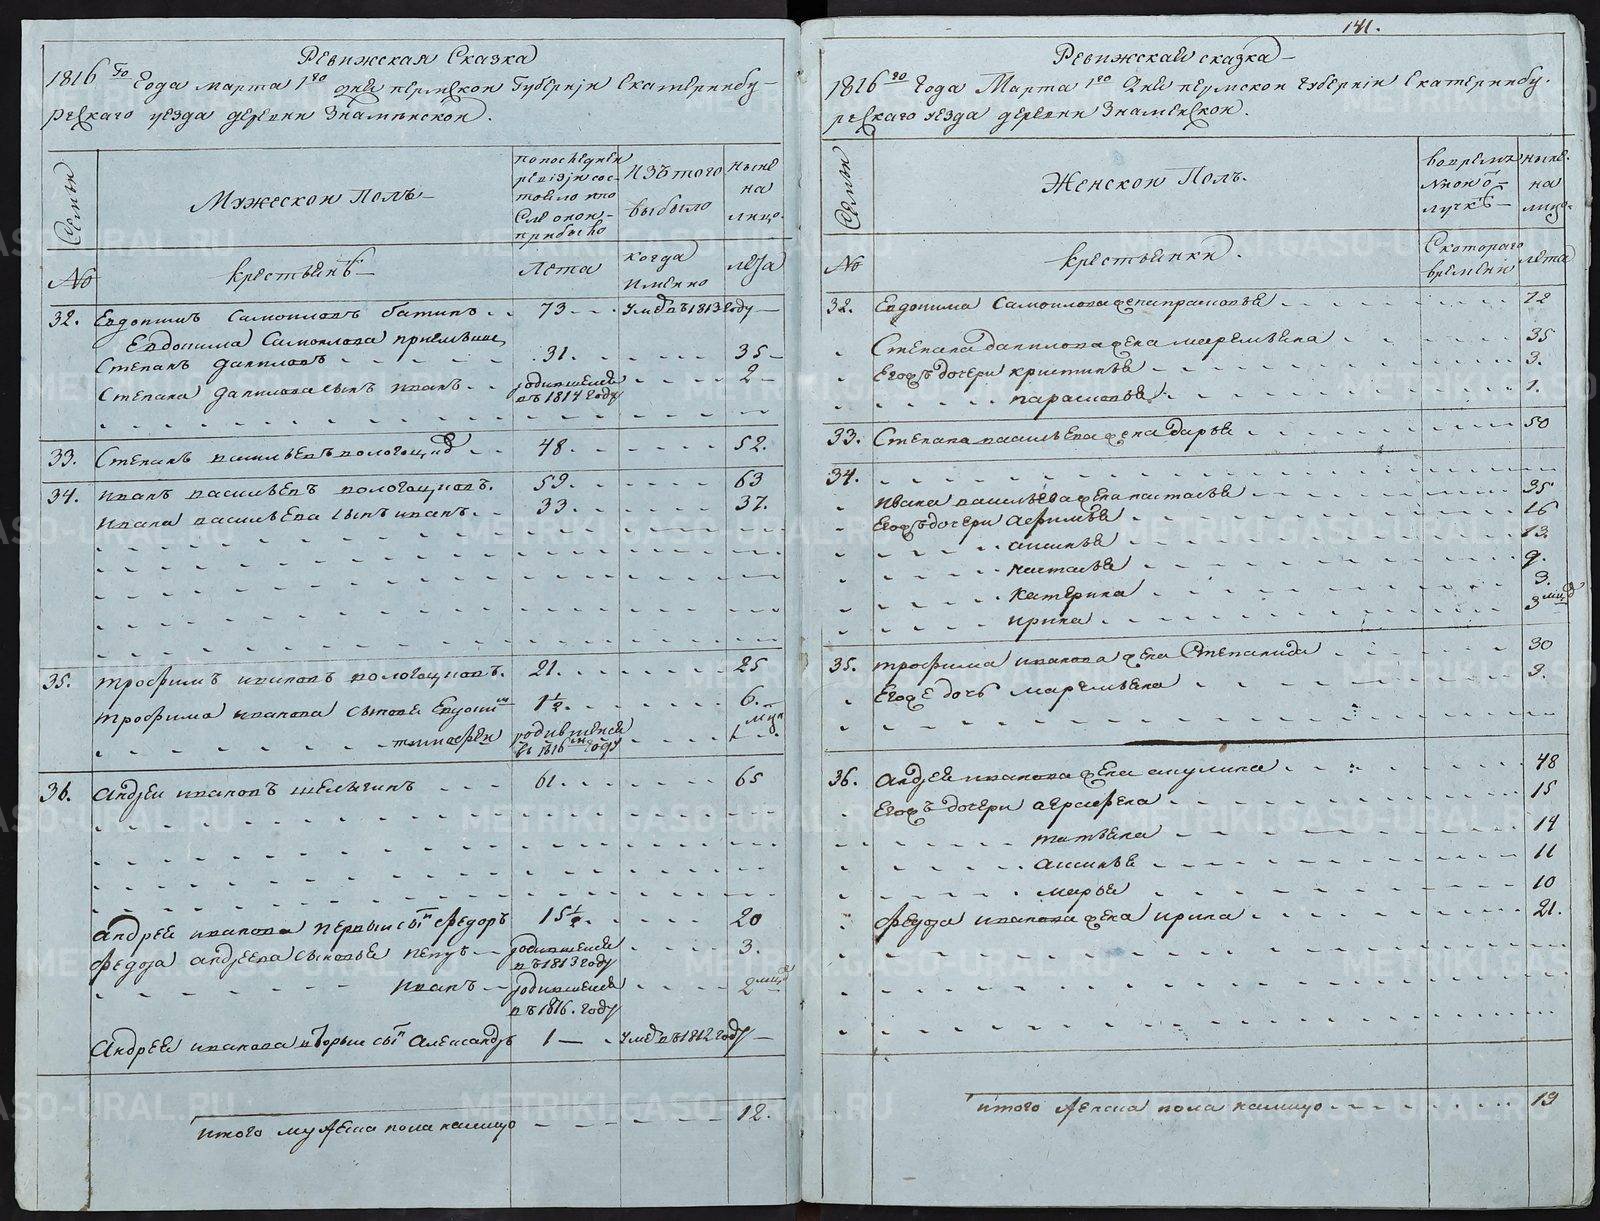 Ревижская Сказка
1816го Года марта 1го дня пермской Губернiи Екатеринбу-
ргскаго уезда деревни Знаминской.
Семьи
Мужеской Полъ
по последней
ревизiи сос-
тояло и по
сле оной
прибыло
Изъ того
выбыло
ныне
на
лицо
№
крестьянъ
Лета
когда
имянно
лета
32. Евдокимъ Самойловъ 73 умеръ въ 1813 году
Евдокима Самойлова приемышъ
Степанъ Даниловъ 31. 35
Степана Данилова сынъ иванъ родившейся въ 1814 году 2
33. Степанъ васильевъ 48. 52.
34. иванъ васильевъ 59. 63
ивана васильева сынъ иванъ 33. 37.
35. трофимъ ивановъ 21. 25
трофима иванова сыновья 1½. 6.
тимофей родившейся въ 1816м году 1 м:ца
36. Андрей ивановъ шелыгинъ 61. 65
Андрея иванова первый сынъ Федоръ 15½. 20
Федора андреева сыновья петръ родившейся въ 1813 году 3.
иванъ родившейся въ 1816. году 2 м:ца
Андрея иванова вторый сынъ Александръ 1 умеръ въ 1812 году
итого мужеска пола налицо 12.
141.
Ревижская сказка
1816го Года Марта 1го Дня пермской Губернiи Екатеринбу-
ргскаго уезда деревни Знаменской.
Семьи
Женской Полъ.
во времянной
отлучкѣ
ныне
на
лицо
№
крестьянки.
С котораго
времени
лета
32. Евдокима Самойлова жена прасковья 72
Степана данилова жена маремьяна 35
Его жъ дочери кристинья 3.
парасковья 1.
33. Степана васильева жена дарья 50
34.
ивана васильева жена настасья 35
Его жъ дочери афимья 16
аксинья 13.
настасья 9.
катерина 3.
ирина 3 м:ца
35. трофима иванова жена Степанида 30
Его же дочь маремьяна 3.
36. андрея иванова жена акулина 48
Его жъ дочери аграфена 15
татьяна 14
аксинья 11
марья 10
Федора иванова жена ирина 21.
итого женска пола налицо 19